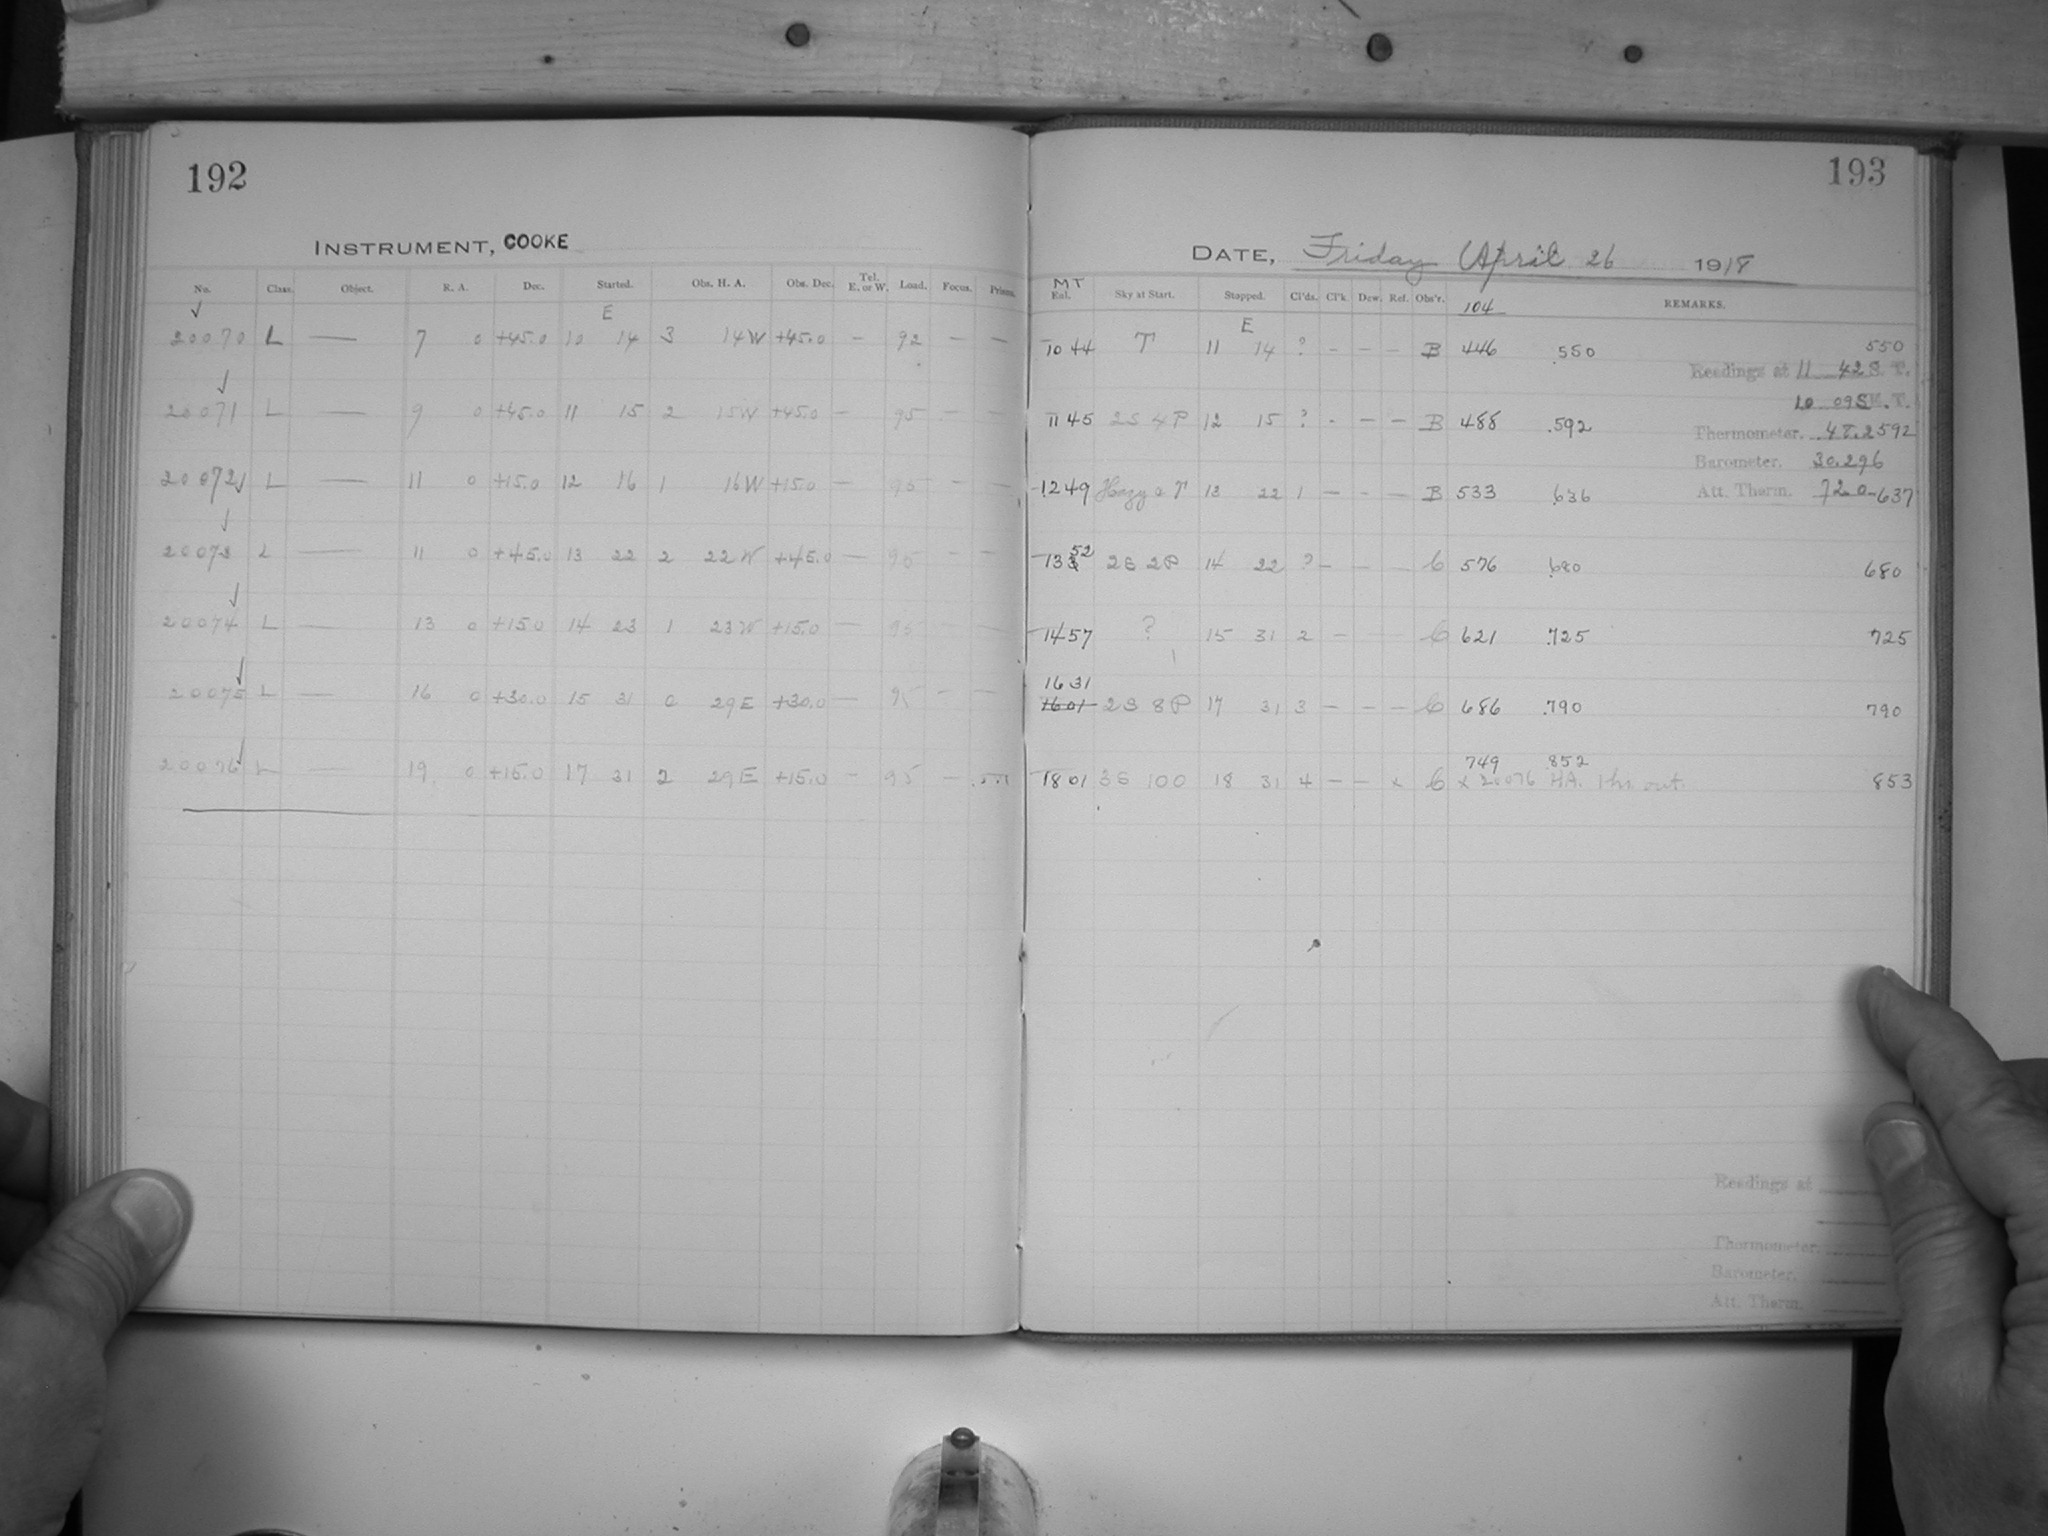 192
INSTRUMENT, COOKE
No. Class. Object. R. A. Dec. Started. Obs. H. A. Obs. Dec. Tel. E. or W. Load. Focus. Prisms.
E
20070 L — 7 0 +45.0 10 14 3 14W +45.0 — 92 — —
20071 L — 9 0 +45.0 11 15 2 15W +45.0 — 95 — —
20072 L — 11 0 +15.0 12 16 1 16W +15.0 — 95 — —
20073 L — 11 0 +45.0 13 22 2 22W +45.0 — 95 — —
20074 L — 13 0 +15.0 14 23 1 23W +15.0 — 95 — —
20075 L — 16 0 +30.0 15 31 0 29E +30.0 — 95 — —
20076 L — 19 0 +15.0 17 31 2 29E +15.0 — 95 —
193
DATE, Friday April 26 1918
MT
Eal. Sky at Start. Stopped. Cl'ds. Cl'k Dew. Ref. Obs'r. 104 REMARKS.
E
10 44 T 11 14 ? - - - B 446 .550 550
Readings at 11 42 S. T.
10 09 S M. T.
11 45 2S 4P 12 15 ? - — — B 488 .592
Thermometer. 47.2 592
Barometer. 30.296
12 49 Hazy & T 13 22 1 — — — B 533 .636
Att. Therm. 72.0 637
52
13 2S 2P 14 22 ? — — — C 576 .680 680
14 57 ? 15 31 2 — — C 621 .725 725
16 31
16 01 2S 8P 17 31 3 — — — C 686 .790 790
749 .852
18 01 3S 100 18 31 4 — — x C x 20076 HA. 1hr. out. 853
Readings at
Thermometer.
Barometer.
Att. Therm.